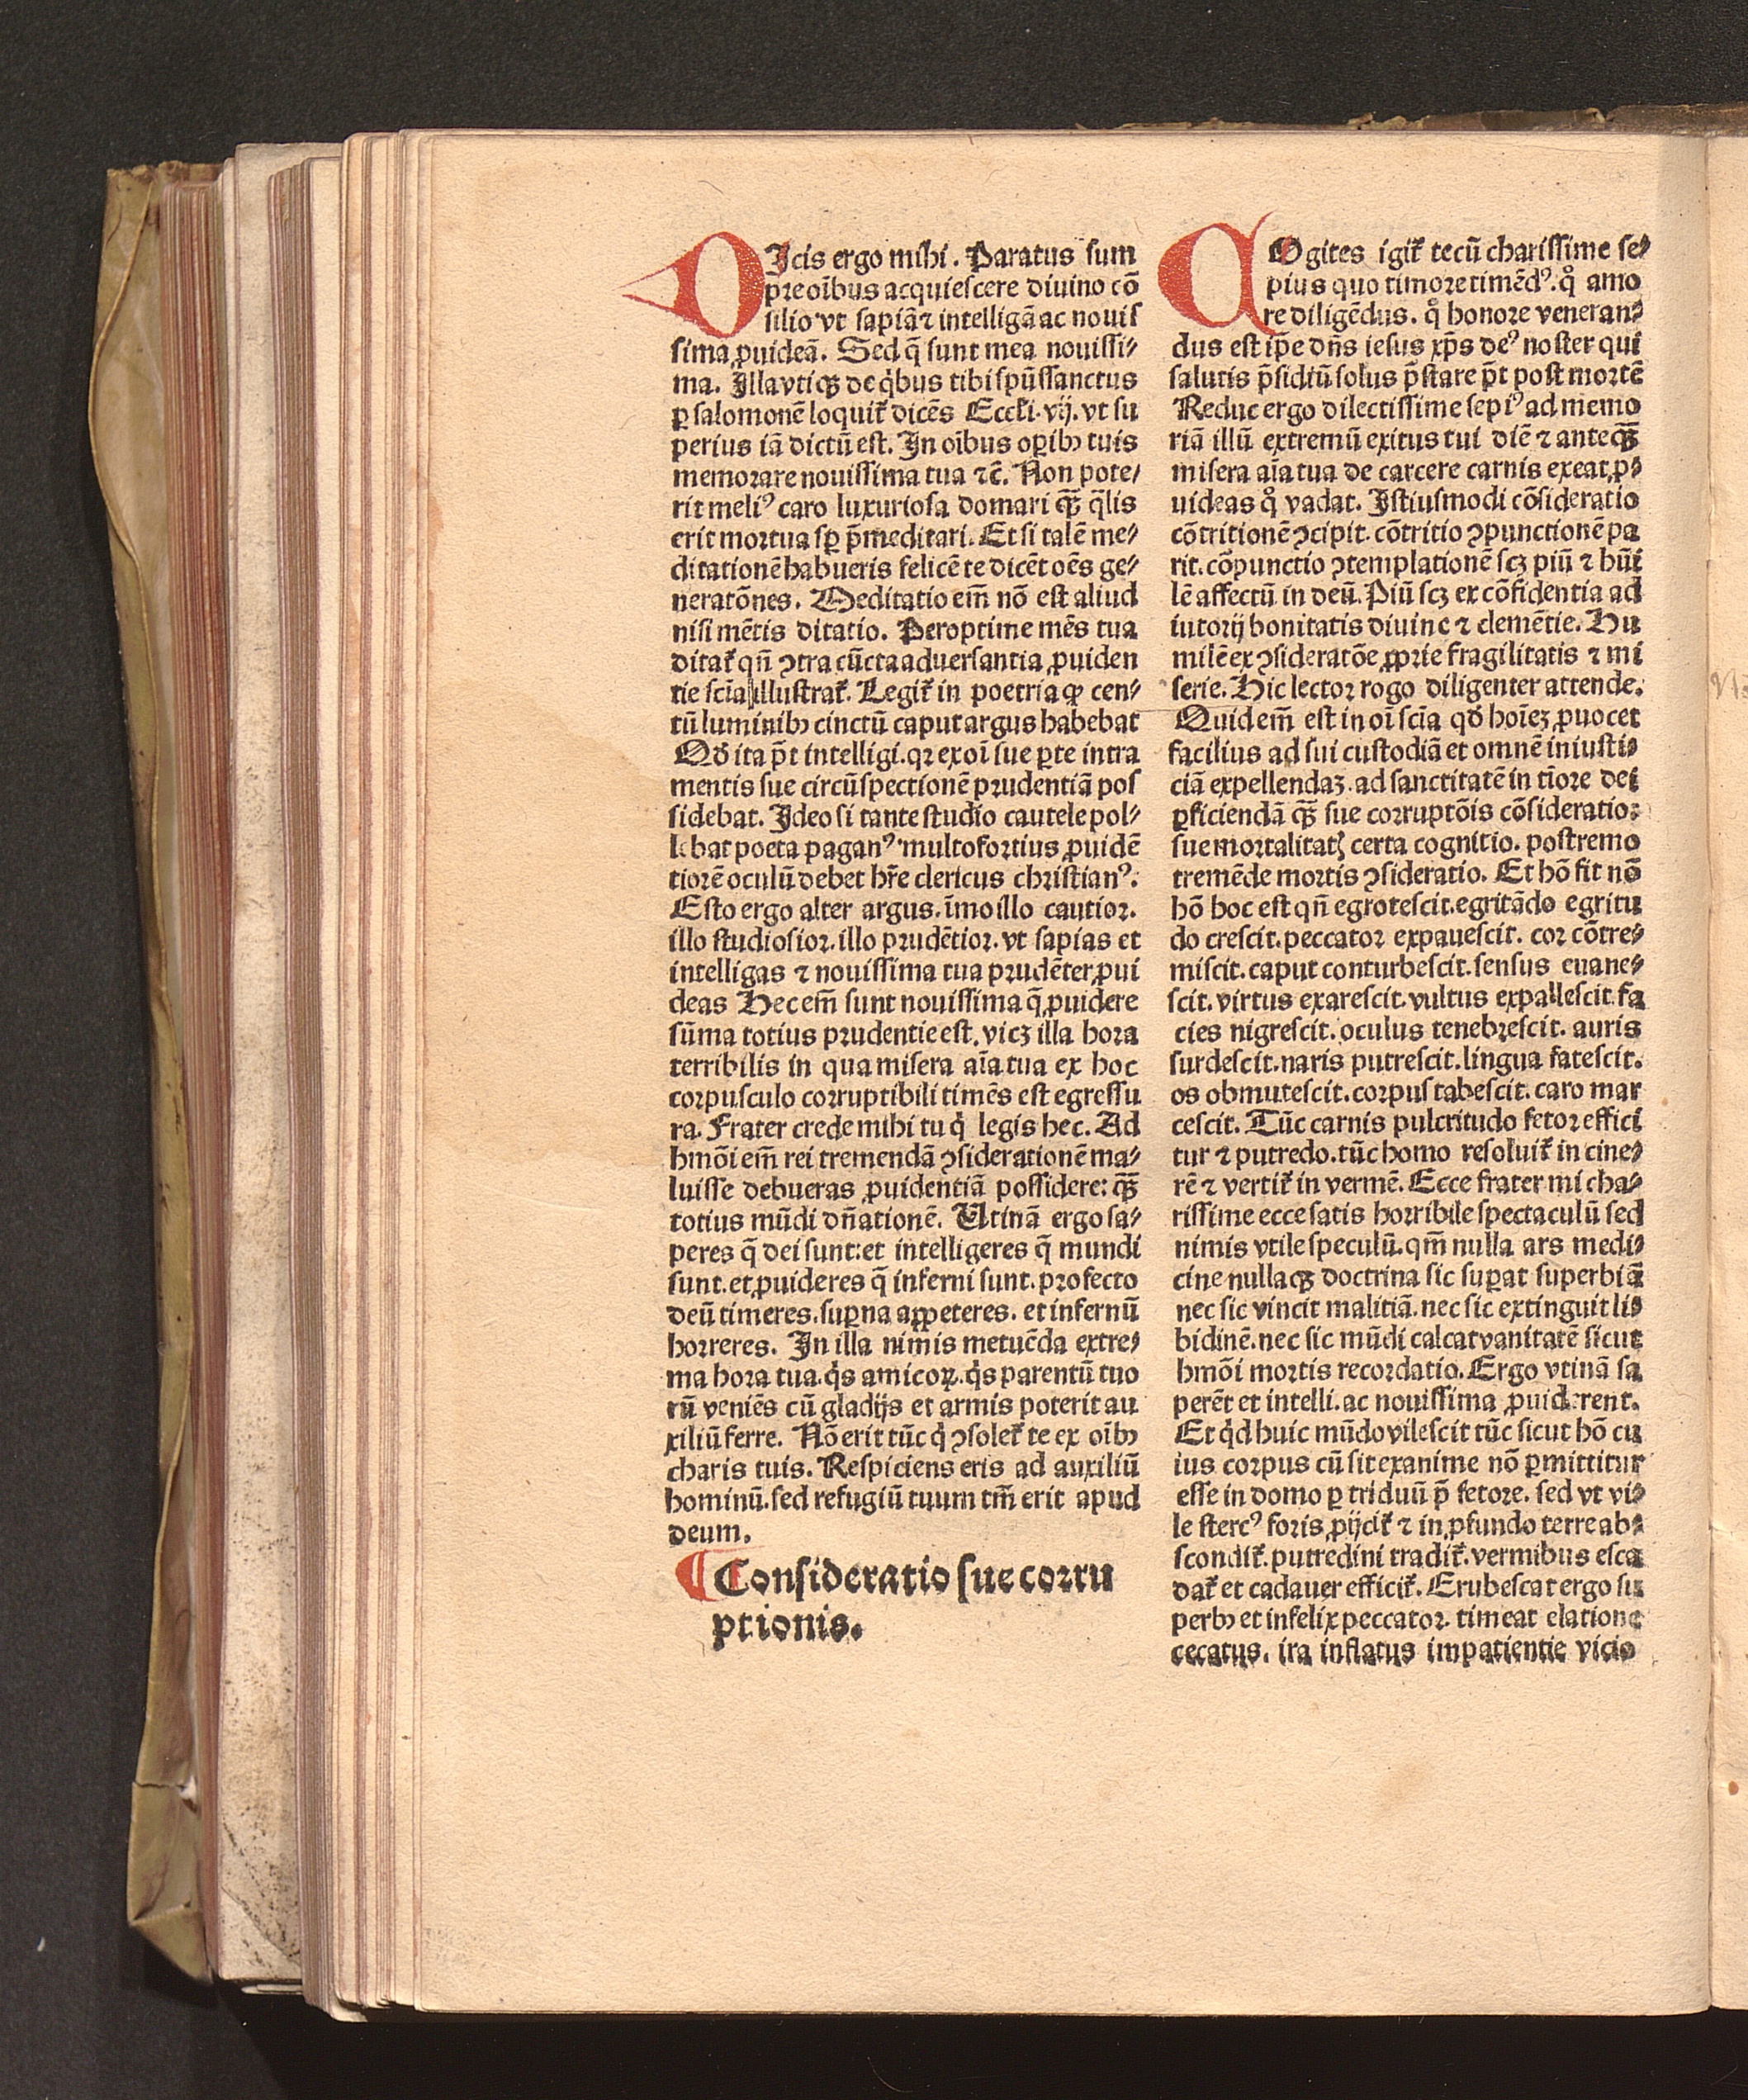 DIcis ergo mihi. Paratus sum
pre oĩbus acquiescere diuino cõ
silio vt sapiã ⁊ intelligã ac nouis
sima ꝓuideã. Sed q̃ sunt mea nouissi⸗
ma. Illa vtiqꝫ de qͥbus tibi spũssanctus
ꝑ salomonẽ loquit̃ dicẽs Eccłi. vij. vt su
perius iã dictũ est. In oĩbus oꝑibꝰ tuis
memorare nouissima tua ⁊c̃. Non pote⸗
rit meliꝰ caro luxuriosa domari qꝫ̃ q̃lis
erit mortua sꝑ p̃meditari. Et si talẽ me⸗
ditationẽ habueris felicẽ te dicẽt oẽs ge⸗
neratõnes. Meditatio em̃ nõ est aliud
nisi mẽtis ditatio. Peroptime mẽs tua
ditat̃ qñ ꝯtra cũcta aduersantia ꝓuiden
tie scĩa illustrat̃. Legit̃ in poetria ꝙ cen⸗
tũ luminibꝰ cinctũ caput argus habebat
Qđ ita p̃t intelligi. qꝛ ex oĩ sue ꝑte intra
mentis sue circũspectionẽ prudentiã pos
sidebat. Ideo si tante studio cautele pol⸗
lebat poeta paganꝰ multofortius ꝓuidẽ
tiorẽ oculũ debet hr̃e clericus christianꝰ.
Esto ergo alter argus. ĩmo illo cautior.
illo studiosior. illo prudẽtior. vt sapias et
intelligas ⁊ nouissima tua prudẽter ꝓui
deas Hec em̃ sunt nouissima q̃ ꝓuidere
sũma totius prudentie est. vicꝫ illa hora
terribilis in qua misera aĩa tua ex hoc
corpusculo corruptibili timẽs est egressu
ra. Frater crede mihi tu qͥ legis hec. Ad
hmõi em̃ rei tremendã ꝯsiderationẽ ma⸗
luisse debueras ꝓuidentiã possidere: qꝫ̃
totius mũdi dñationẽ. Utinã ergo sa⸗
peres q̃ dei sunt: et intelligeres q̃ mundi
sunt. et ꝓuideres q̃ inferni sunt. profecto
deũ timeres. suꝑna apꝑeteres. et infernũ
horreres. In illa nimis metuẽda extre⸗
ma hora tua. qͥs amicoꝝ. qͥs parentũ tuo
rũ veniẽs cũ gladijs et armis poterit au
xiliũ ferre. Nõ erit tũc qͥ ꝯsolet̃ te ex oĩbꝰ
charis tuis. Respiciens eris ad auxiliũ
hominũ. sed refugiũ tuum tm̃ erit apud
deum.
¶ Consideratio sue corru
ptionis.
COgites igit̃ tecũ charissime se⸗
pius quo timore timẽdꝰ. qͦ amo
re diligẽdus. qͦ honore veneran⸗
dus est ip̃e dñs iesus xp̃s deꝰ noster qui
salutis p̃sidiũ solus p̃stare p̃t post mortẽ
Reduc ergo dilectissime sepiꝰ ad memo
riã illũ extremũ exitus tui diẽ ⁊ anteqꝫ̃
misera aĩa tua de carcere carnis exeat ꝓ⸗
uideas qͦ vadat. Istiusmodi cõsideratio
cõtritionẽ ꝯcipit. cõtritio ꝯpunctionẽ pa
rit. cõpunctio ꝯtemplationẽ scꝫ piũ ⁊ hũi
lẽ affectũ in deũ. Piũ scꝫ ex cõfidentia ad
iutorij bonitatis diuine ⁊ clemẽtie. Hu
milẽ ex ꝯsideratõe ꝓprie fragilitatis ⁊ mi
serie. Hic lector rogo diligenter attende.
Quid em̃ est in oĩ scĩa qđ hoĩeꝫ ꝓuocet
facilius ad sui custodiã et omnẽ iniusti⸗
ciã expellendaꝫ. ad sanctitatẽ in tĩore dei
ꝑficiendã qꝫ̃ sue corruptõis cõsideratio:
sue mortalitatꝭ certa cognitio. postremo
tremẽde mortis ꝯsideratio. Et hõ fit nõ
hõ hoc est qñ egrotescit. egritãdo egritu
do crescit. peccator expauescit. cor cõtre⸗
miscit. caput conturbescit. sensus euane⸗
scit. virtus exarescit. vultus expallescit. fa
cies nigrescit. oculus tenebrescit. auris
surdescit. naris putrescit. lingua fatescit.
os obmutescit. corpus tabescit. caro mar
cescit. Tũc carnis pulcritudo fetor effici
tur ⁊ putredo. tũc homo resoluit̃ in cine⸗
rẽ ⁊ vertit̃ in vermẽ. Ecce frater mi cha⸗
rissime ecce satis horribile spectaculũ sed
nimis vtile speculũ. qm̃ nulla ars medi⸗
cine nullaqꝫ doctrina sic suꝑat superbiã
nec sic vincit malitiã. nec sic extinguit li⸗
bidinẽ. nec sic mũdi calcat vanitatẽ sicut
hmõi mortis recordatio. Ergo vtinã sa
perẽt et intelli. ac nouissima ꝓuiderent.
Et qͥd huic mũdo vilescit tũc sicut hõ cu
ius corpus cũ sit exanime nõ ꝑmittitur
esse in domo ꝑ triduũ p̃ fetore. sed vt vi⸗
le stercꝰ foris ꝓijcit̃ ⁊ in ꝓfundo terre ab⸗
scondit̃. putredini tradit̃. vermibus esca
dat̃ et cadauer efficit̃. Erubescat ergo su
perbꝰ et infelix peccator. timeat elatione
cecatus. ira inflatus impatientie vicio